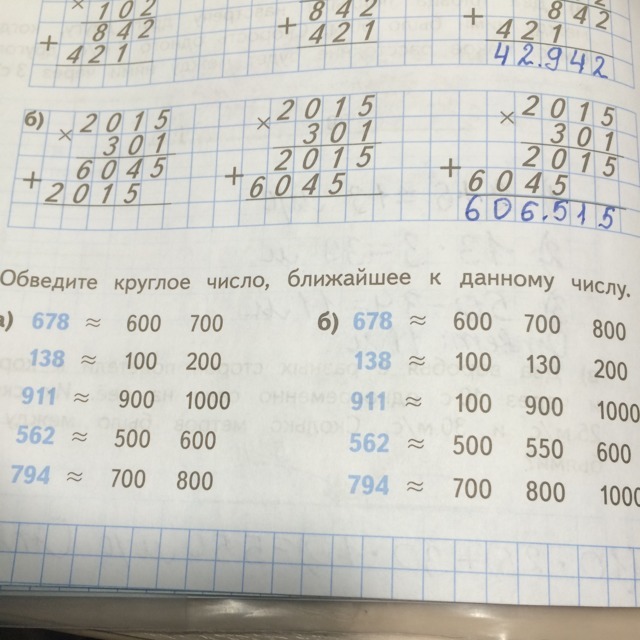 × 102
+ 842
421
842
+ 421
842
+ 421
42.942
б) × 2015
301
+ 6045
2015
× 2015
301
+ 2015
6045
× 2015
301
+ 2015
6045
606.515
Обведите круглое число, ближайшее к данному числу.
а) 678 ≈ 600 700
138 ≈ 100 200
911 ≈ 900 1000
562 ≈ 500 600
794 ≈ 700 800
б) 678 ≈ 600 700 800
138 ≈ 100 130 200
911 ≈ 100 900 1000
562 ≈ 500 550 600
794 ≈ 700 800 1000